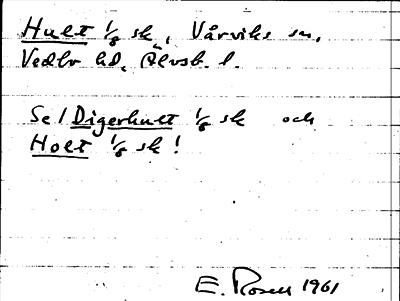 Hult 1/8 sk, Vårviks sn,
Vedbo hd, Älvsb. l.
Se / Digerhult 1/8 sk och
Holt 1/8 sk!
E. Rosell 1961